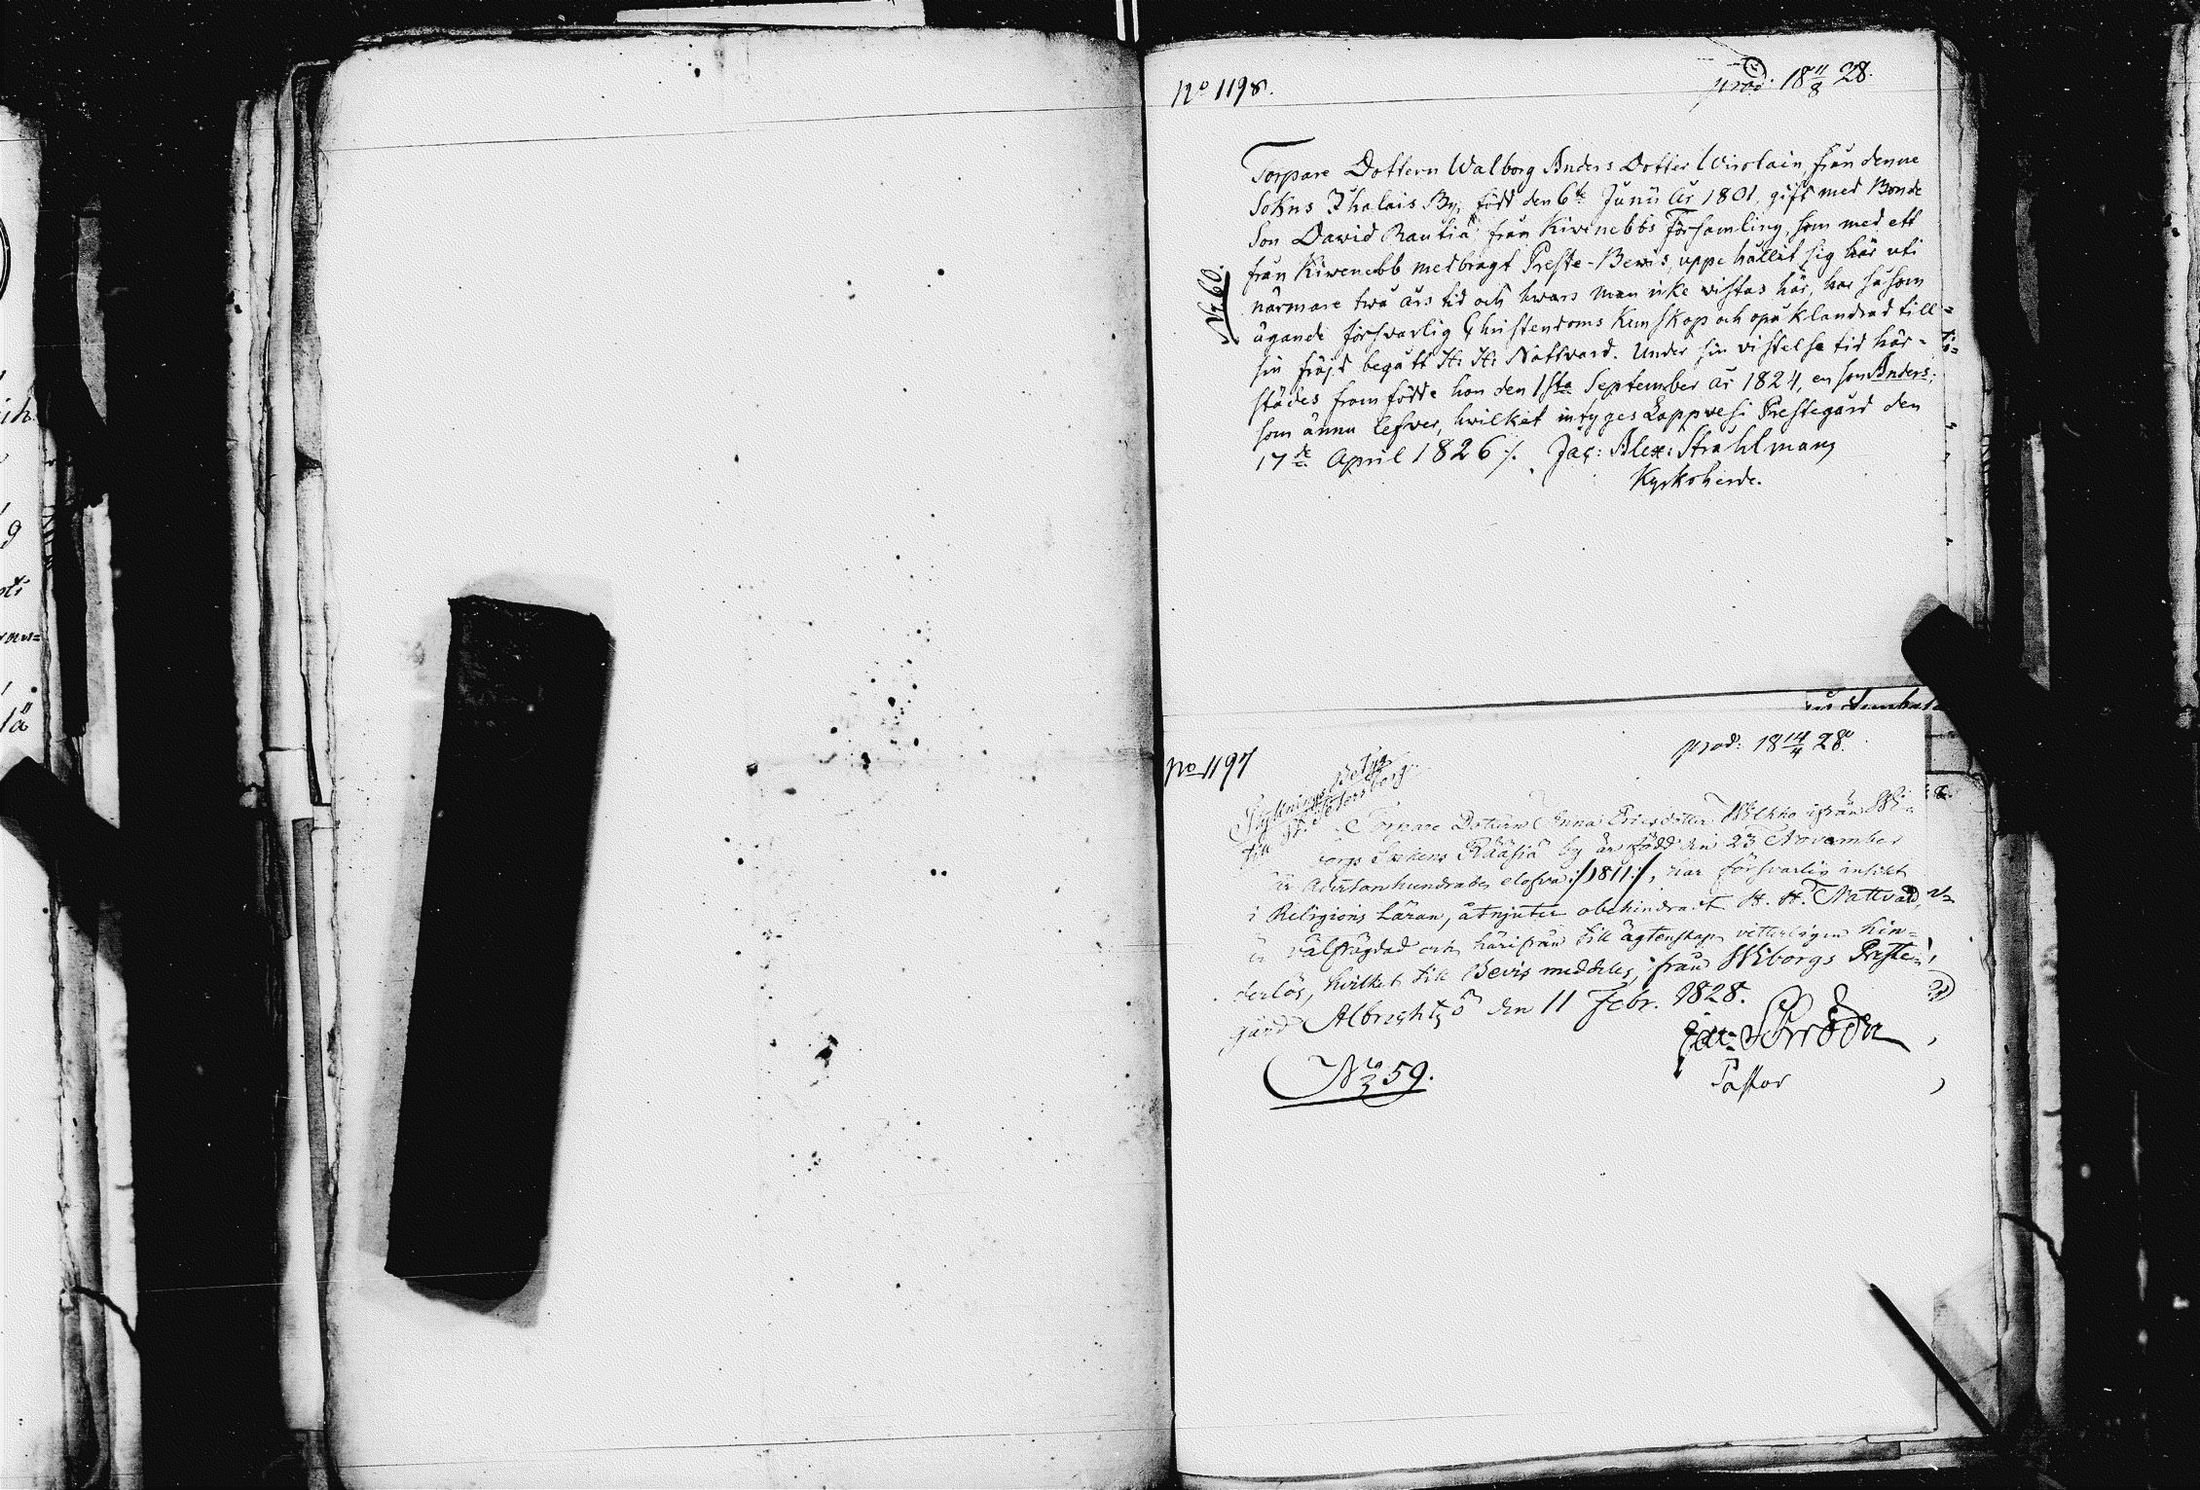 No 1198.
prod: 18 11/8 28.
Torpare Dottern Walborg Anders Dotter Wirolain, från denne
Sokns Ihalais By, född den 6te Junii År 1801, gift med Bonde
Son Dawid Rautia, från Kivinebbs Församling, som med ett
från Kiwenebb medbragt Preste-Bewis, uppe hållit sig här uti
närmare twå års tid och hwars man icke wistas här, har såsom
ägande försvarlig Christendoms Kunskap och opåklandrad till
sin fräjd begått H: H: Nattvard. Under sin vistelse tid här-
städes framfödde hon den 1sta September år 1824, en son Anders;
som ännu Lefver, hvilket intyges Lappvesi Prestegård den
17de April 1826 ./. Jac: Alex: Strahlman
Kyrkoherde.
No 60.
No 1197
prod: 18 14/4 28.
Betyg
till St. Petersborg
Torpare Dottern Anna Ericsdotter Wilkko ifrån Wi-
borgs Sockens Rääsiä by är född den 23 November
år Adertonhundrade elofva /:1811:/, har försvarlig insikt
i Religions Läran, åtnjuter obehindradt H. H. Nattvard,
är välfrägdad och härifrån till ägtenskap vitterligen hin-
derlös, hvilket till Bevis meddeles, från Wiborgs Preste-
gård Albrechtsö den 11 Febr. 1828.
Pastor
No 59.